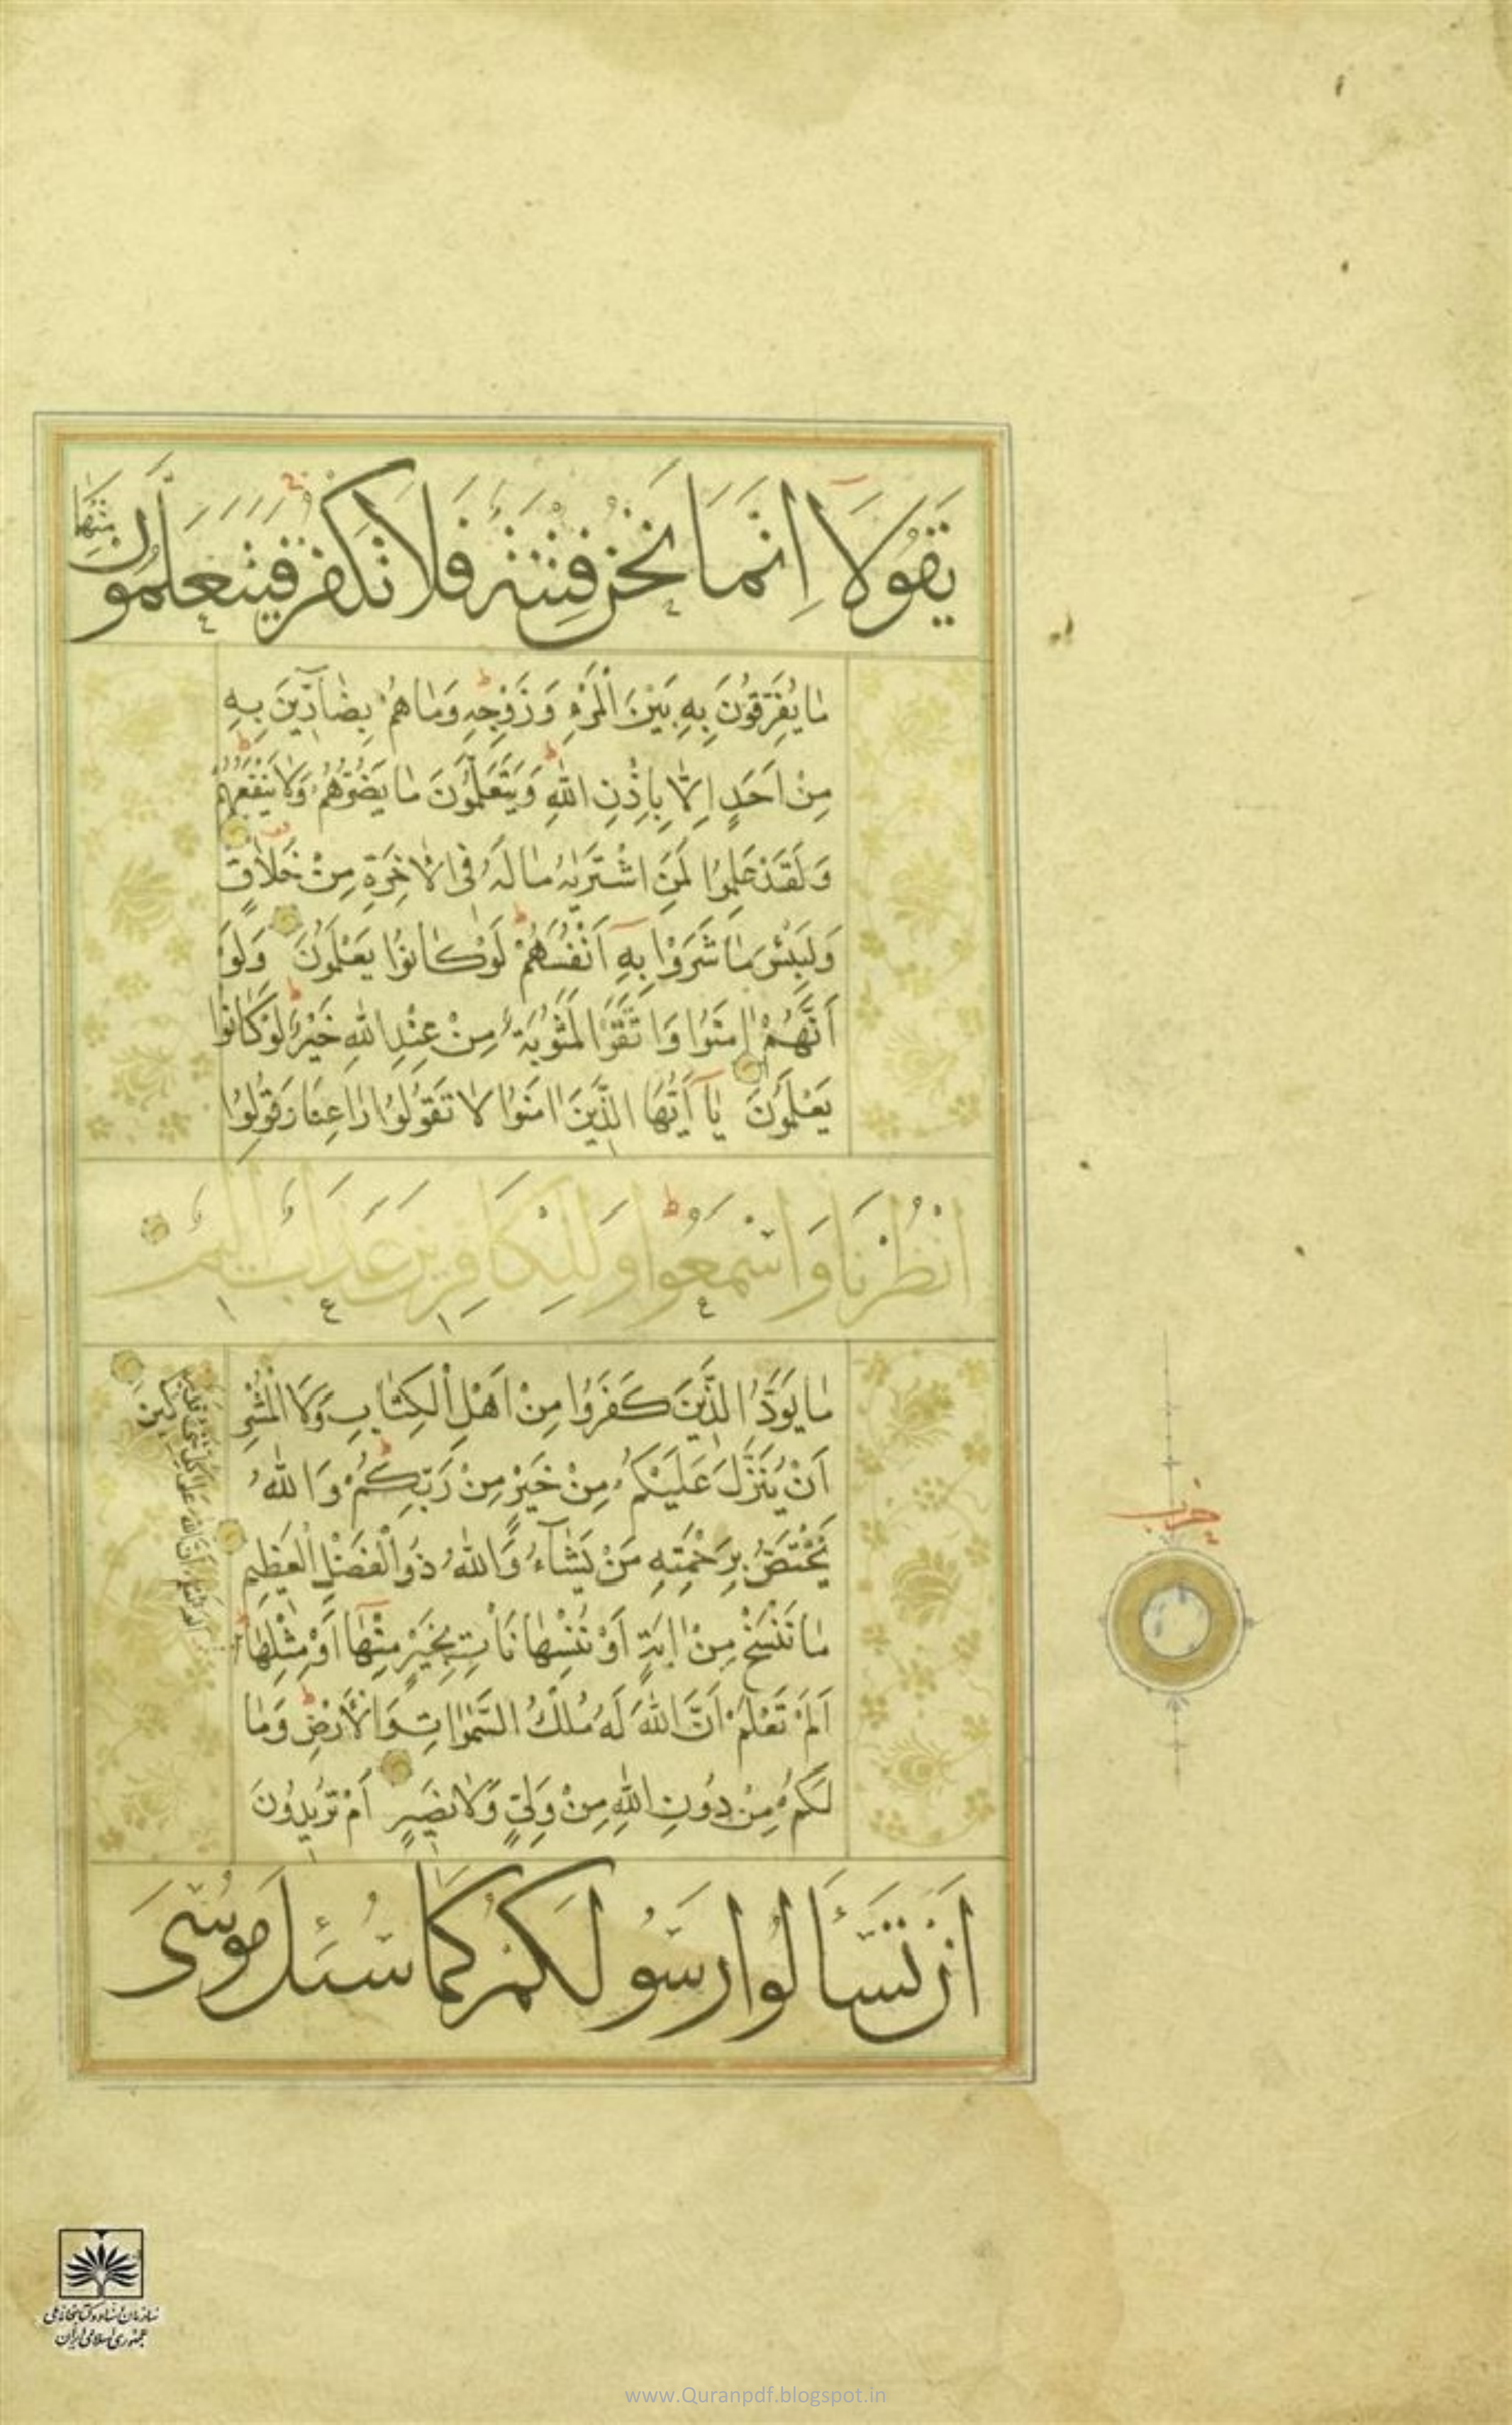 يَقُولَا اِنَّمَا نَحْنُ فِتْنَةٌ فَلَا تَكْفُرْ فَيَتَعَلَّمُونَ مِنْهُمَا
مَا يُفَرِّقُونَ بِهِ بَيْنَ الْمَرْءِ وَزَوْجِهِ وَمَا هُمْ بِضَآرِّينَ بِهِ
مِنْ اَحَدٍ اِلَّا بِاِذْنِ اللّٰهِ وَيَتَعَلَّمُونَ مَا يَضُرُّهُمْ وَلَا يَنْفَعُهُمْ
وَلَقَدْ عَلِمُوا لَمَنِ اشْتَرٰيهُ مَا لَهُ فِى الْاٰخِرَةِ مِنْ خَلَاقٍ
وَلَبِئْسَ مَا شَرَوْا بِهِ اَنْفُسَهُمْ لَوْ كَانُوا يَعْلَمُونَ وَلَوْ
اَنَّهُمْ اٰمَنُوا وَاتَّقَوْا لَمَثُوبَةٌ مِنْ عِنْدِ اللّٰهِ خَيْرٌ لَوْ كَانُوا
يَعْلَمُونَ يَآ اَيُّهَا الَّذِينَ اٰمَنُوا لَا تَقُولُوا رَاعِنَا وَقُولُوا
انْظُرْنَا وَاسْمَعُوا وَلِلْكَافِرِينَ عَذَابٌ اَلِيمٌ
مَا يَوَدُّ الَّذِينَ كَفَرُوا مِنْ اَهْلِ الْكِتَابِ وَلَا الْمُشْرِ
كِينَ
اَنْ يُنَزَّلَ عَلَيْكُمْ مِنْ خَيْرٍ مِنْ رَبِّكُمْ وَاللّٰهُ
يَخْتَصُّ بِرَحْمَتِهِ مَنْ يَشَآءُ وَاللّٰهُ ذُو الْفَضْلِ الْعَظِيمِ
مَا نَنْسَخْ مِنْ اٰيَةٍ اَوْ نُنْسِهَا نَاْتِ بِخَيْرٍ مِنْهَا اَوْ مِثْلِهَا
اَلَمْ تَعْلَمْ اَنَّ اللّٰهَ عَلٰى كُلِّ شَىْءٍ قَدِيرٌ
اَلَمْ تَعْلَمْ اَنَّ اللّٰهَ لَهُ مُلْكُ السَّمٰوَاتِ وَالْاَرْضِ وَمَا
لَكُمْ مِنْ دُونِ اللّٰهِ مِنْ وَلِىٍّ وَلَا نَصِيرٍ اَمْ تُرِيدُونَ
اَنْ تَسْاَلُوا رَسُولَكُمْ كَمَا سُئِلَ مُوسٰى
حزب
سازمان اسناد و کتابخانه ملی
جمهوری اسلامی ایران
www.Quranpdf.blogspot.in